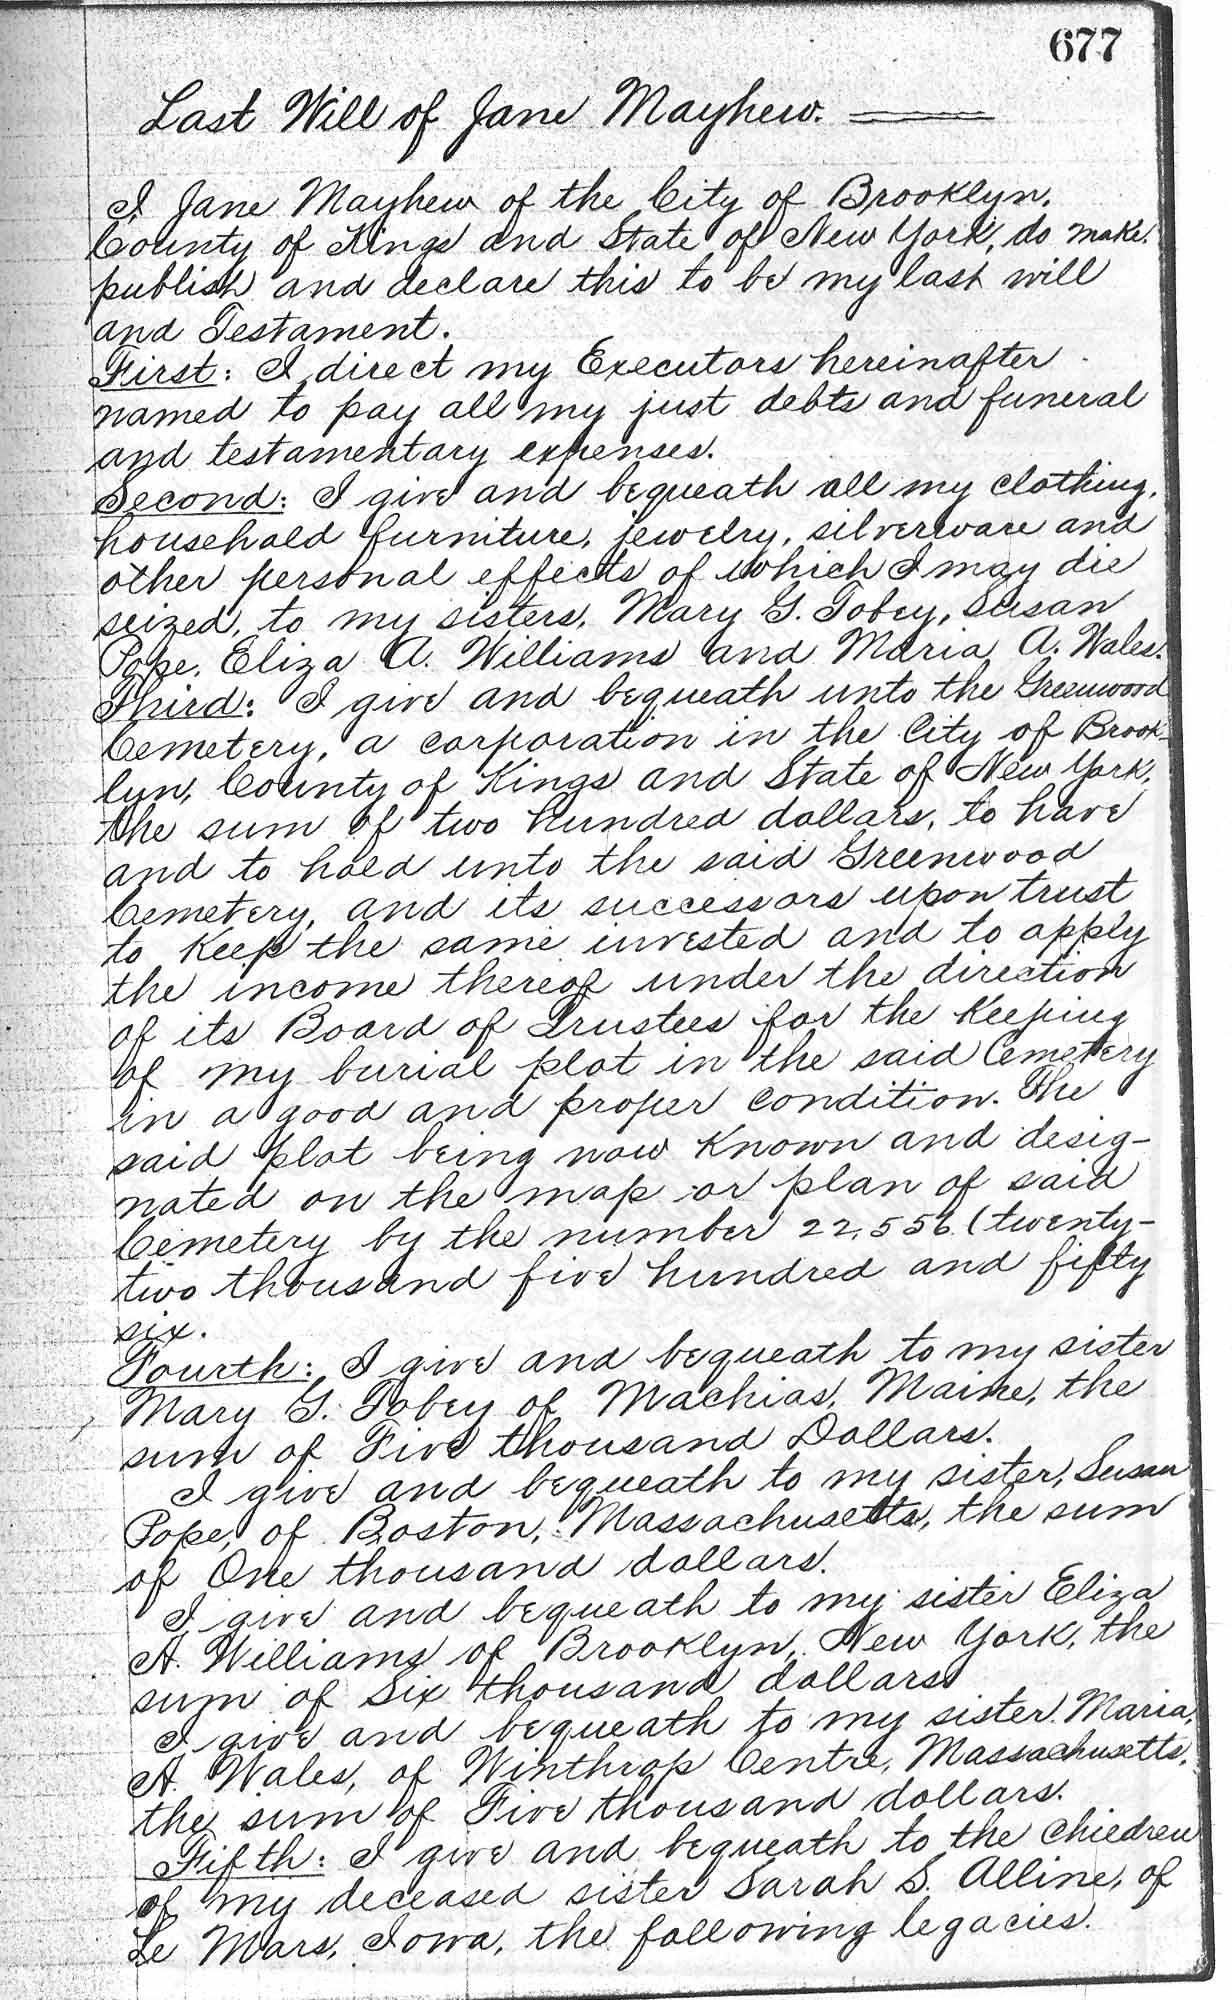 677
Last Will of Jane Mayhew.
I, Jane Mayhew of the City of Brooklyn,
County of Kings and State of New York, do make,
publish and declare this to be my last will
and Testament.
First: I direct my Executors hereinafter
named to pay all my just debts and funeral
and testamentary expenses.
Second: I give and bequeath all my clothing,
household furniture, jewelry, silverware and
other personal effects of which I may die
seized, to my sisters, Mary G. Tobey, Susan
Pope, Eliza A. Williams and Maria A. Wales.
Third: I give and bequeath unto the Greenwood
Cemetery, a corporation in the City of Brook-
lyn, County of Kings and State of New York,
the sum of two hundred dollars, to have
and to hold unto the said Greenwood
Cemetery, and its successors upon trust
to keep the same invested and to apply
the income thereof under the direction
of its Board of Trustees for the keeping
of my burial plot in the said Cemetery
in a good and proper condition. The
said plot being now known and desig-
nated on the map or plan of said
Cemetery by the number 22,556 (twenty-
two thousand five hundred and fifty
six.
Fourth: I give and bequeath to my sister
Mary G. Tobey of Machias, Maine, the
sum of Five thousand Dollars.
I give and bequeath to my sister, Susan
Pope, of Boston, Massachusetts, the sum
of One thousand dollars.
I give and bequeath to my sister Eliza
A. Williams of Brooklyn, New York, the
sum of Six thousand dollars
I give and bequeath to my sister Maria,
A. Wales, of Winthrop Centre, Massachusetts,
the sum of Five thousand dollars.
Fifth: I give and bequeath to the children
of my deceased sister Sarah S. Alline, of
Le Mars, Iowa, the following legacies.